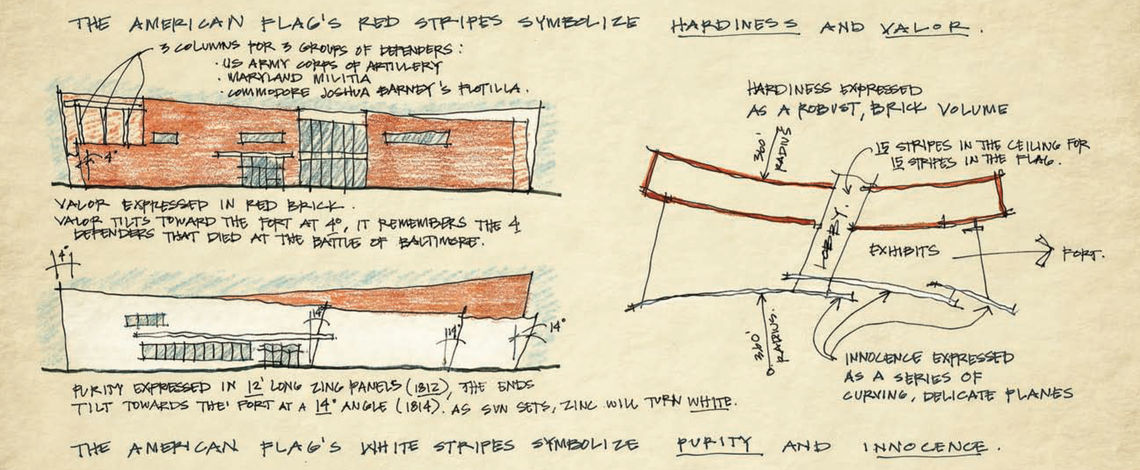 THE AMERICAN FLAG'S RED STRIPES SYMBOLIZE HARDINESS AND VALOR.
3 COLUMNS FOR 3 GROUPS OF DEFENDERS:
· US ARMY CORPS OF ARTILLERY
· MARYLAND MILITIA
· COMMODORE JOSHUA BARNEY'S FLOTILLA.
4°
VALOR EXPRESSED IN RED BRICK.
VALOR TILTS TOWARD THE FORT AT 4°, IT REMEMBERS THE 4
DEFENDERS THAT DIED AT THE BATTLE OF BALTIMORE.
HARDINESS EXPRESSED
AS A ROBUST, BRICK VOLUME
360'
RADIUS
15 STRIPES IN THE CEILING FOR
15 STRIPES IN THE FLAG.
LOBBY.
EXHIBITS
FORT.
360'
RADIUS.
INNOCENCE EXPRESSED
AS A SERIES OF
CURVING, DELICATE PLANES
4°
14°
14°
14°
PURITY EXPRESSED IN 12' LONG ZINC PANELS (1812), THE ENDS
TILT TOWARDS THE FORT AT A 14° ANGLE (1814). AS SUN SETS, ZINC WILL TURN WHITE.
THE AMERICAN FLAG'S WHITE STRIPES SYMBOLIZE PURITY AND INNOCENCE.